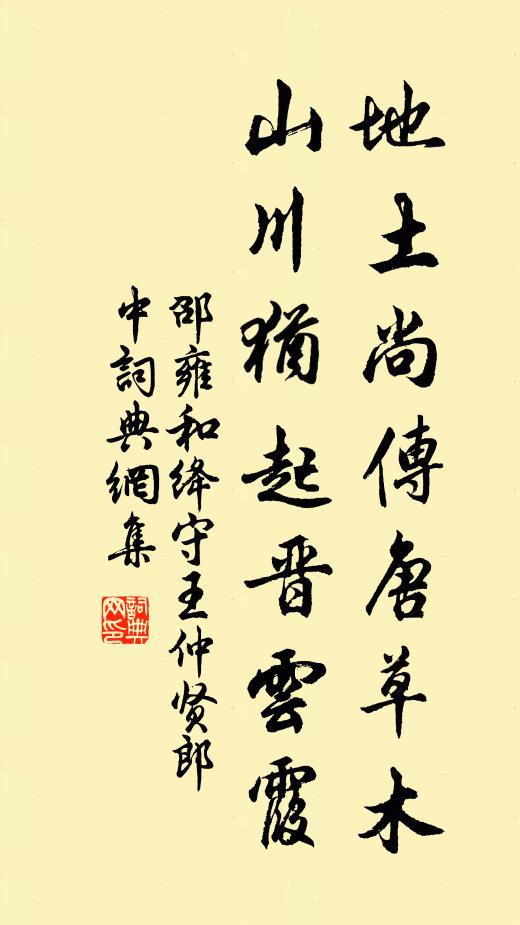 地土尚傳唐草木
山川猶起晋雲霞
邵雍和绛守王仲贤郎
中詞典網集
詞典
网印